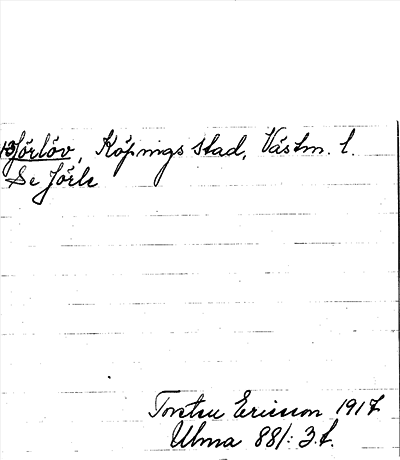 13) Jörlöv, Köpings stad, Västm. l.
Se Jörle
Torsten Ericsson 1917
Ulma 881: 3.f.